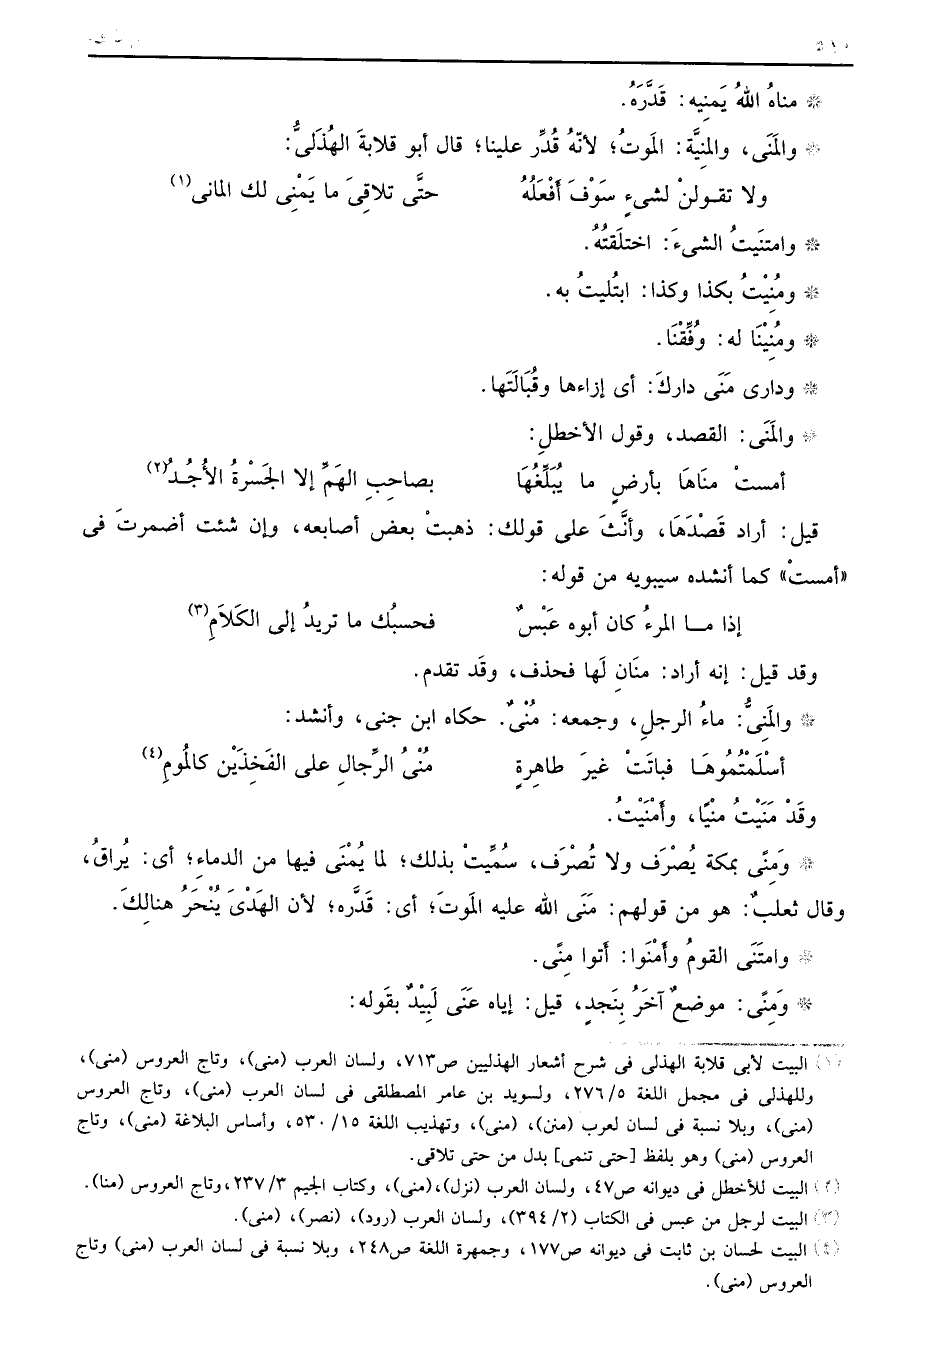 ٥١٠
* مناهُ اللهُ يَمنِيه: قَدَّرَهُ.
* والمَنَى، والمنِيَّة: المَوتُ؛ لأنّهُ قُدِّر علينا؛ قال أبو قلابةَ الهُذَلىُّ:
ولا تقـولنْ لشىءٍ سَوْفَ أَفْعَلُهُ حتَّى تلاقِىَ ما يَمْنِى لك المانى(١)
* وامتنَيتُ الشىءَ: اختلَقتُهُ.
* ومُنِيْتُ بكذا وكذا: ابتُليتُ به.
* ومُنِيْنَا له: وُفِّقْنَا.
* ودارى مَنَى دارِكَ: أى إزاءها وقُبَالَتَها.
* والمَنَى: القصد، وقول الأخطلِ:
أمستْ منَاهَا بأرضٍ ما يُبَلِّغُهَا بصاحِبِ الهَمِّ إلا الجَسْرةُ الأُجُـدُ(٢)
قيل: أراد قَصْدَهَا، وأنَّثَ على قولك: ذهبتْ بعض أصابعه، وإن شئت أضمرتَ فى
«أمستْ» كما أنشده سيبويه من قوله:
إذا مــا المرءُ كان أبوه عَبْسٌ فحسبُك ما تريدُ إلى الكَلاَمِ(٣)
وقد قيل: إنه أراد: منَانِ لَها فحذف، وقَد تقدم.
* والمَنِىُّ: ماءُ الرجلِ، وجمعه: مُنْىٌ. حكاه ابن جنى، وأنشد:
أسْلَمْتُمُوهَـا فباتَتْ غيرَ طاهِرةٍ مُنْىُ الرِّجالِ على الفَخذَيْن كالمُومِ(٤)
وقَدْ مَنَيْتُ منْيًا، وأَمْنَيْتُ.
* وَمنًى بمكة يُصْرَف ولا تُصْرَف، سُمِّيتْ بذلك؛ لما يُمْنَى فيها من الدماء؛ أى: يُراقُ،
وقال ثعلبٌ: هو من قولهم: مَنَى الله عليه المَوتَ؛ أى: قَدَّره؛ لأن الهَدْىَ يُنْحَرُ هنالِكَ.
* وامتَنَى القومُ وأَمْنَوا: أَتوا مِنًى.
* وَمنًى: موضعٌ آخَرُ بِنَجدٍ، قيل: إياه عَنَى لَبِيْدٌ بقَوله:
(١) البيت لأبى قلابة الهذلى فى شرح أشعار الهذليين ص٧١٣، ولسان العرب (منى)، وتاج العروس (منى)،
وللهذلى فى مجمل اللغة ٥/ ٢٧٦، ولسويد بن عامر المصطلقى فى لسان العرب (منى)، وتاج العروس
(منى)، وبلا نسبة فى لسان لعرب (منن)، (منى)، وتهذيب اللغة ١٥/ ٥٣٠، وأساس البلاغة (منى)، وتاج
العروس (منى) وهو بلفظ [حتى تنمى] بدل من حتى تلاقى.
(٢) البيت للأخطل فى ديوانه ص٤٧، ولسان العرب (نزل)،(منى)، وكتاب الجيم ٣/ ٢٣٧،وتاج العروس (منا).
(٣) البيت لرجل من عبس فى الكتاب (٢/ ٣٩٤)، ولسان العرب (رود)، (نصر)، (منى).
(٤) البيت لحسان بن ثابت فى ديوانه ص١٧٧، وجمهرة اللغة ص٢٤٨، وبلا نسبة فى لسان العرب (منى) وتاج
العروس (منى).